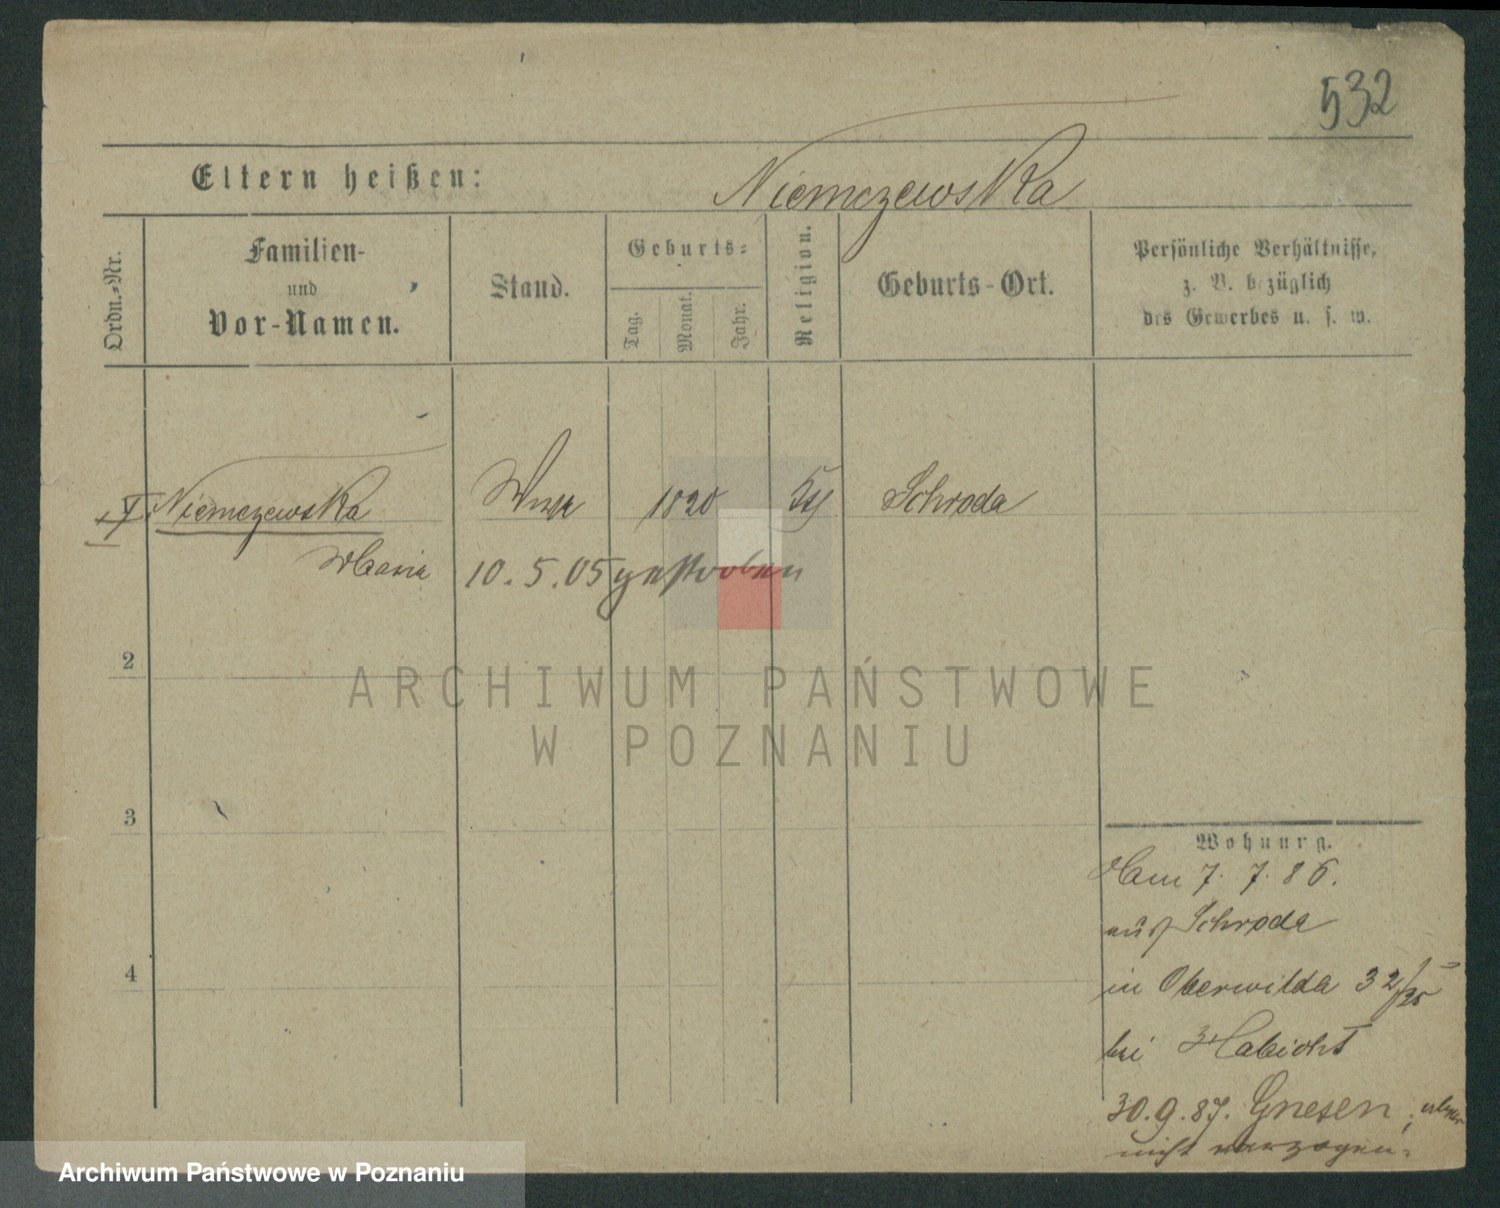 532
Eltern heißen:
Niemczewska
Ordn.-Nr.
Familien-
und
Vor-Namen.
Stand.
Geburts-
Tag.
Monat.
Jahr.
Religion.
Geburts-Ort.
Persönliche Verhältnisse,
z. B. bezüglich
des Gewerbes u. s. w.
Niemczewska Wwe 1820 Schroda
Maria 10.5.05 gestorben
2
3
4
Wohnung.
7. 7. 86.
aus Schroda
in Oberwilda 32/35
bei Habicht
30.9.87. Gnesen,
nicht verzogen.
ARCHIWUM PAŃSTWOWE
W POZNANIU
Archiwum Państwowe w Poznaniu